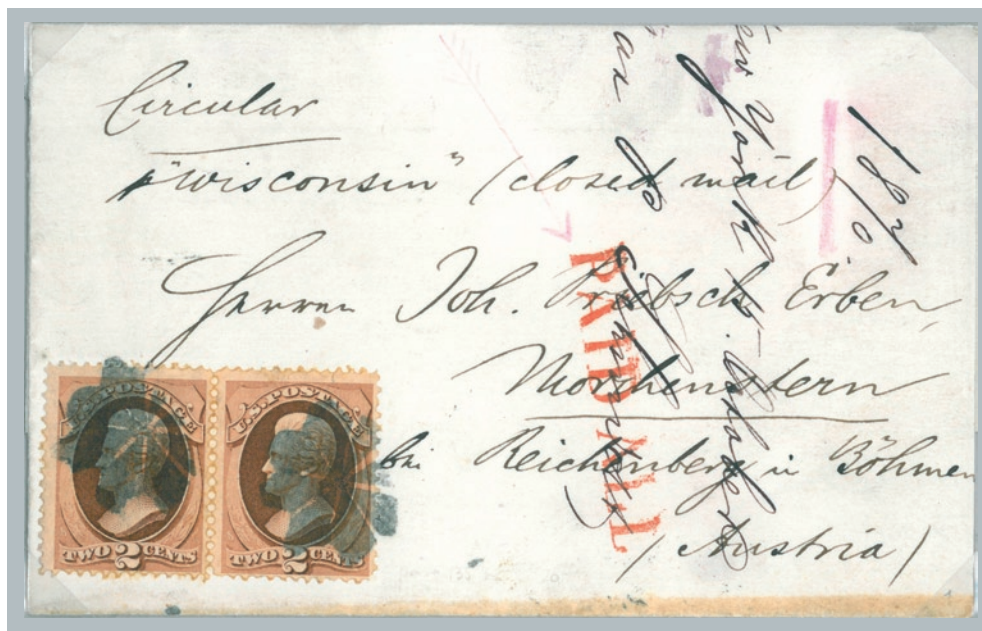 Circular
"Wisconsin" (closed mail)
Herren Joh. Priebsch Erben,
Morchenstern
bei Reichenberg in Böhmen
(Austria)
PAID ALL
1870
York
U.S. POSTAGE
TWO 2 CENTS
U.S. POSTAGE
TWO 2 CENTS